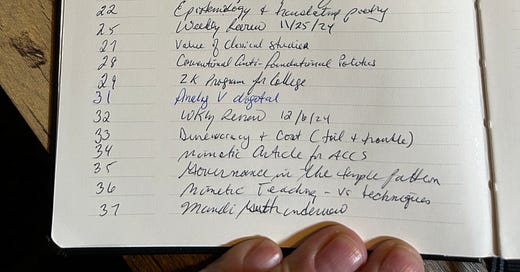 22 Epistemology & translating poetry
25 Weekly Review 11/25/24
27 Value of Classical studies
28 Conventional Anti-foundational Politics
29 ZK Program for College
31 Analog V digital
32 Wkly Review 12/6/24
33 Bureaucracy & Cost (toil & trouble)
34 Mimetic Article for ACCS
35 Governance in the temple pattern
36 Mimetic Teaching - vs techniques
37 Mandi interview